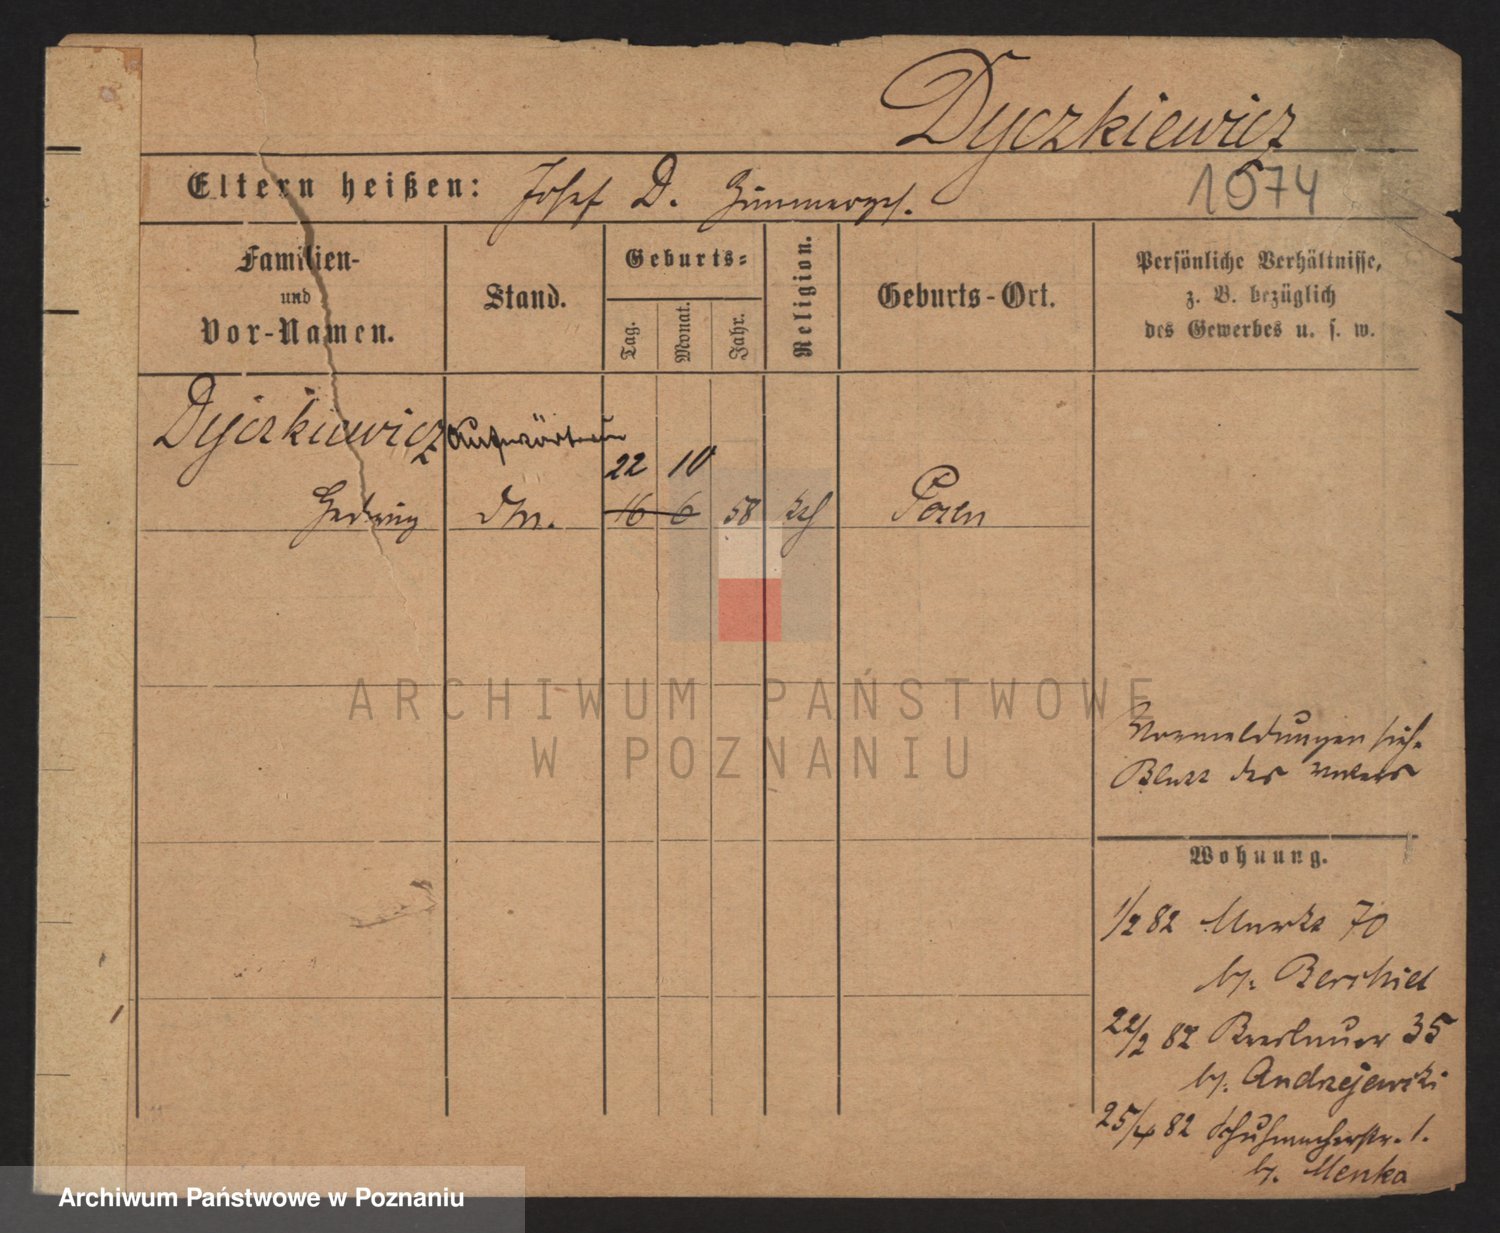 Dyczkiewicz
Eltern heißen: Josef D. Zimmerges.
1574
Familien-
und
Vor-Namen.
Stand.
Geburts-
Tag.
Monat.
Jahr.
Religion.
Geburts-Ort.
Persönliche Verhältnisse,
z. B. bezüglich
des Gewerbes u. s. w.
Dyczkiewicz Aufwärterin
22 10
Hedwig 16 6 58 Posen
ARCHIWUM PAŃSTWOWE
W POZNANIU
Vormeldungen sieh.
Blatt des Vaters
Wohnung.
1/2 82 Markt 70
b/.
22/2 82 Breslauer 35
b/. Andrzejewski
25/4 82 Schuhmacherstr. 1.
b/. Menka
Archiwum Państwowe w Poznaniu